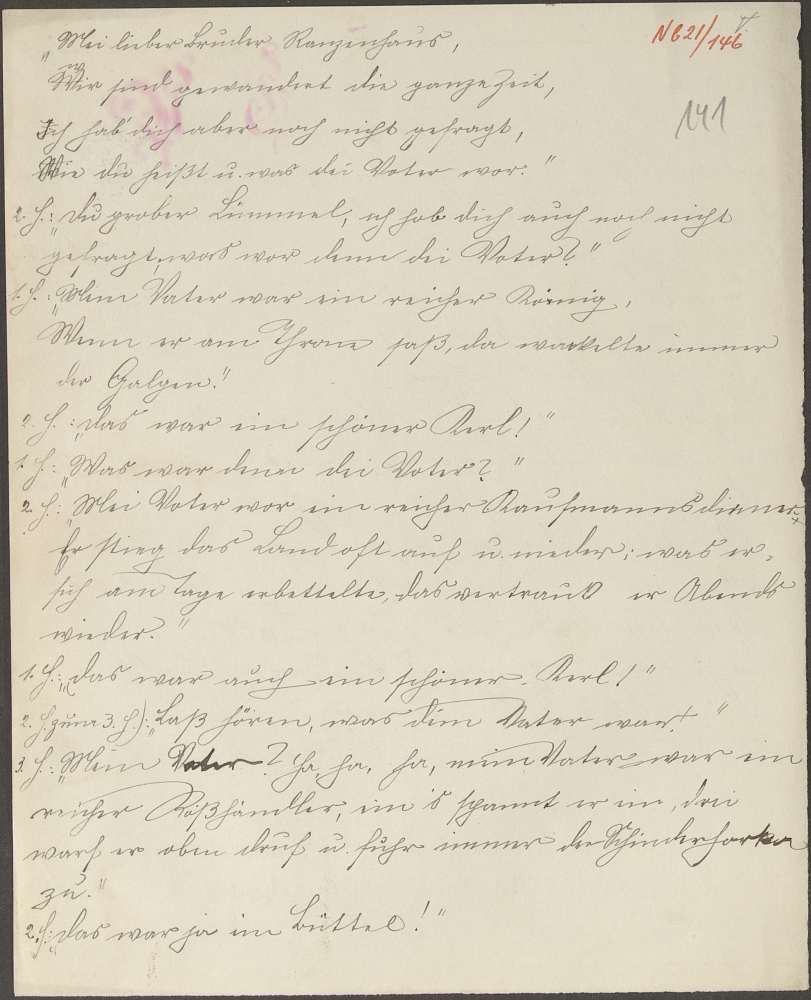 NB21/146
141
"Mei lieber Bruder Ranzenhans,
Wir sind gewandert die ganze Zeit,
Ich hab' dich aber noch nicht gefragt,
Wie du heißt u. was dei Voter wor."
2. H.: "Du grober Lümmel, ich hob dich auch noch nicht
gefragt, was wor denn dei Voter?"
1. H.: "Mein Vater war ein reicher König,
Wenn er am Throne saß, da wackelte immer
der Galgen."
2. H.: "Das war ein schöner Kerl!"
1. H.: "Was war denn dei Voter?"
2. H.: "Mei Voter wor ein reicher Kaufmannsdiener.
Er stieg das Land oft auf u. nieder; was er
sich am Tage erbettelte, das vertrank er Abends
wieder."
1. H.: "Das war auch ein schöner Kerl!"
2. H. (zum 3. H.): "Laß hören, was dein Vater war!"
3. H.: "Mein Vater? Ha, ha, ha, mein Vater war ein
reicher Roßhändler, ein's spannt er ein, drei
warf er oben druf u. fuhr immer der
zu."
2. H.: "Das war ja ein Büttel!"